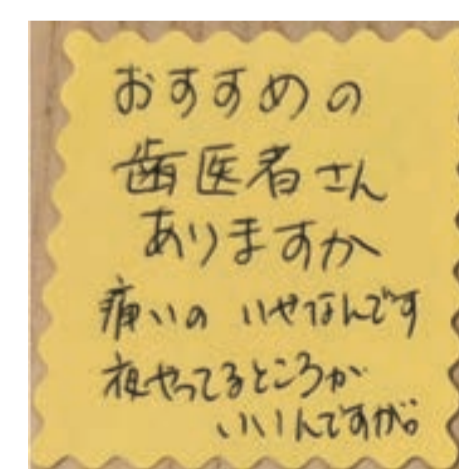 おすすめの
歯医者さん
ありますか
痛いの いやなんです
夜やってるところが
いいんですが。